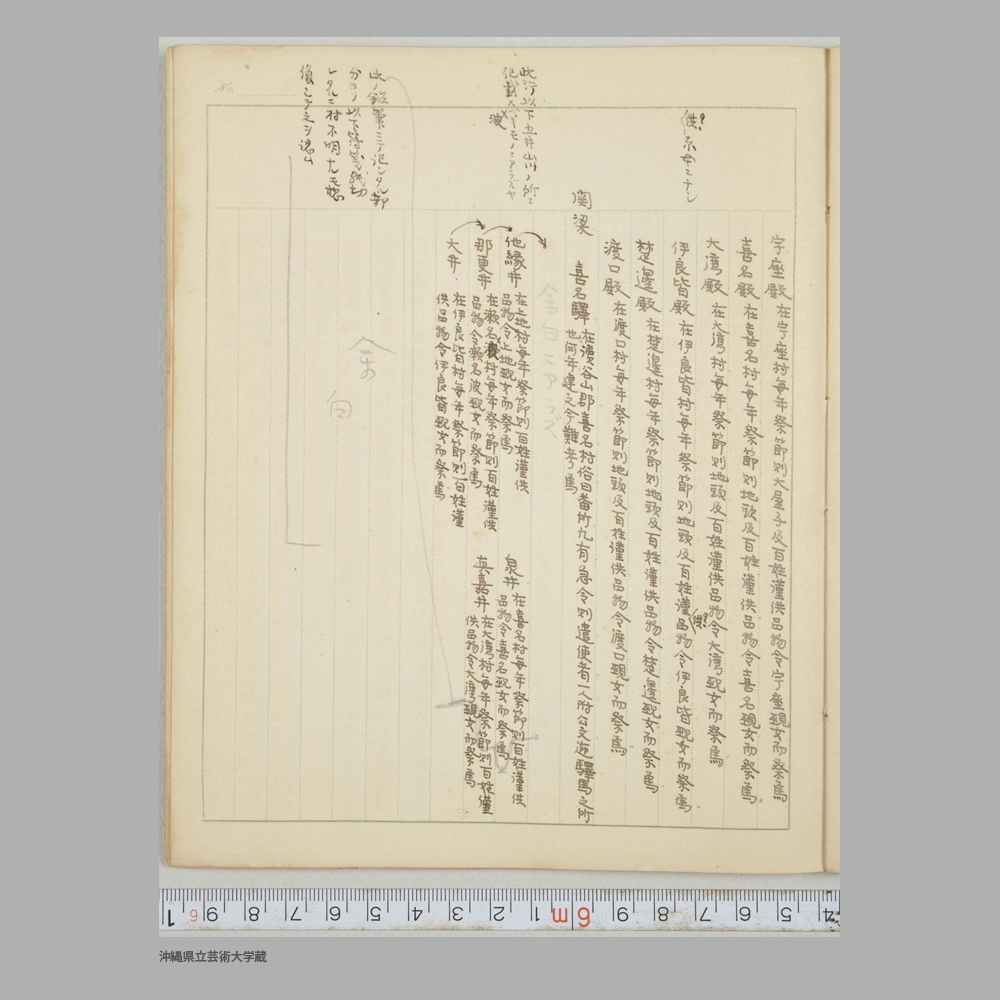 供?原本ニナシ
宇座殿 在宇座村毎年祭節則大屋子及百姓謹供品物令宇座覡女而祭焉
喜名殿 在喜名村毎年祭節則地頭及百姓謹供品物令喜名覡女而祭焉
大湾殿 在大湾村毎年祭節則地頭及百姓謹供品物令大湾覡女而祭焉
伊良皆殿 在伊良皆村毎年祭節則地頭及百姓謹品物令伊良皆覡女而祭焉
供?
楚邊殿 在楚邊村毎年祭節則地頭及百姓謹供品物令楚邊覡女而祭焉
渡口殿 在渡口村毎年祭節則地頭及百姓謹供品物令渡口覡女而祭焉
関梁
喜名驛 在讀谷山郡喜名村俗曰番所凡有急令則遣使者一人附公文逓驛馬之所
也何年建之今難考焉
余白ニアラズ
此行以下五井山川ノ所ニ
記載スベキモノニアラズヤ
波
他縁井 在上地村毎年祭節則百姓謹供
品物令上地覡女而祭焉
泉井 在喜名村毎年祭節則百姓謹供
品物令喜名覡女而祭焉
那更井 在瀬名波村毎年祭節則百姓謹供
品物令瀬名波覡女而祭焉
真嘉井 在大湾村毎年祭節則百姓謹
供品物令大湾覡女而祭焉
大井 在伊良皆村毎年祭節則百姓謹
供品物令伊良皆覡女而祭焉
此ノ鉛筆ニテ記シタル部
分ヨリ以下符箋
レタル
村不明ナルモ想
像シテ之ヲ
余白
No.
1 6 9 8 7 6 5 4 3 2 1 6m 9 8 7 6 5 4
沖縄県立芸術大学蔵